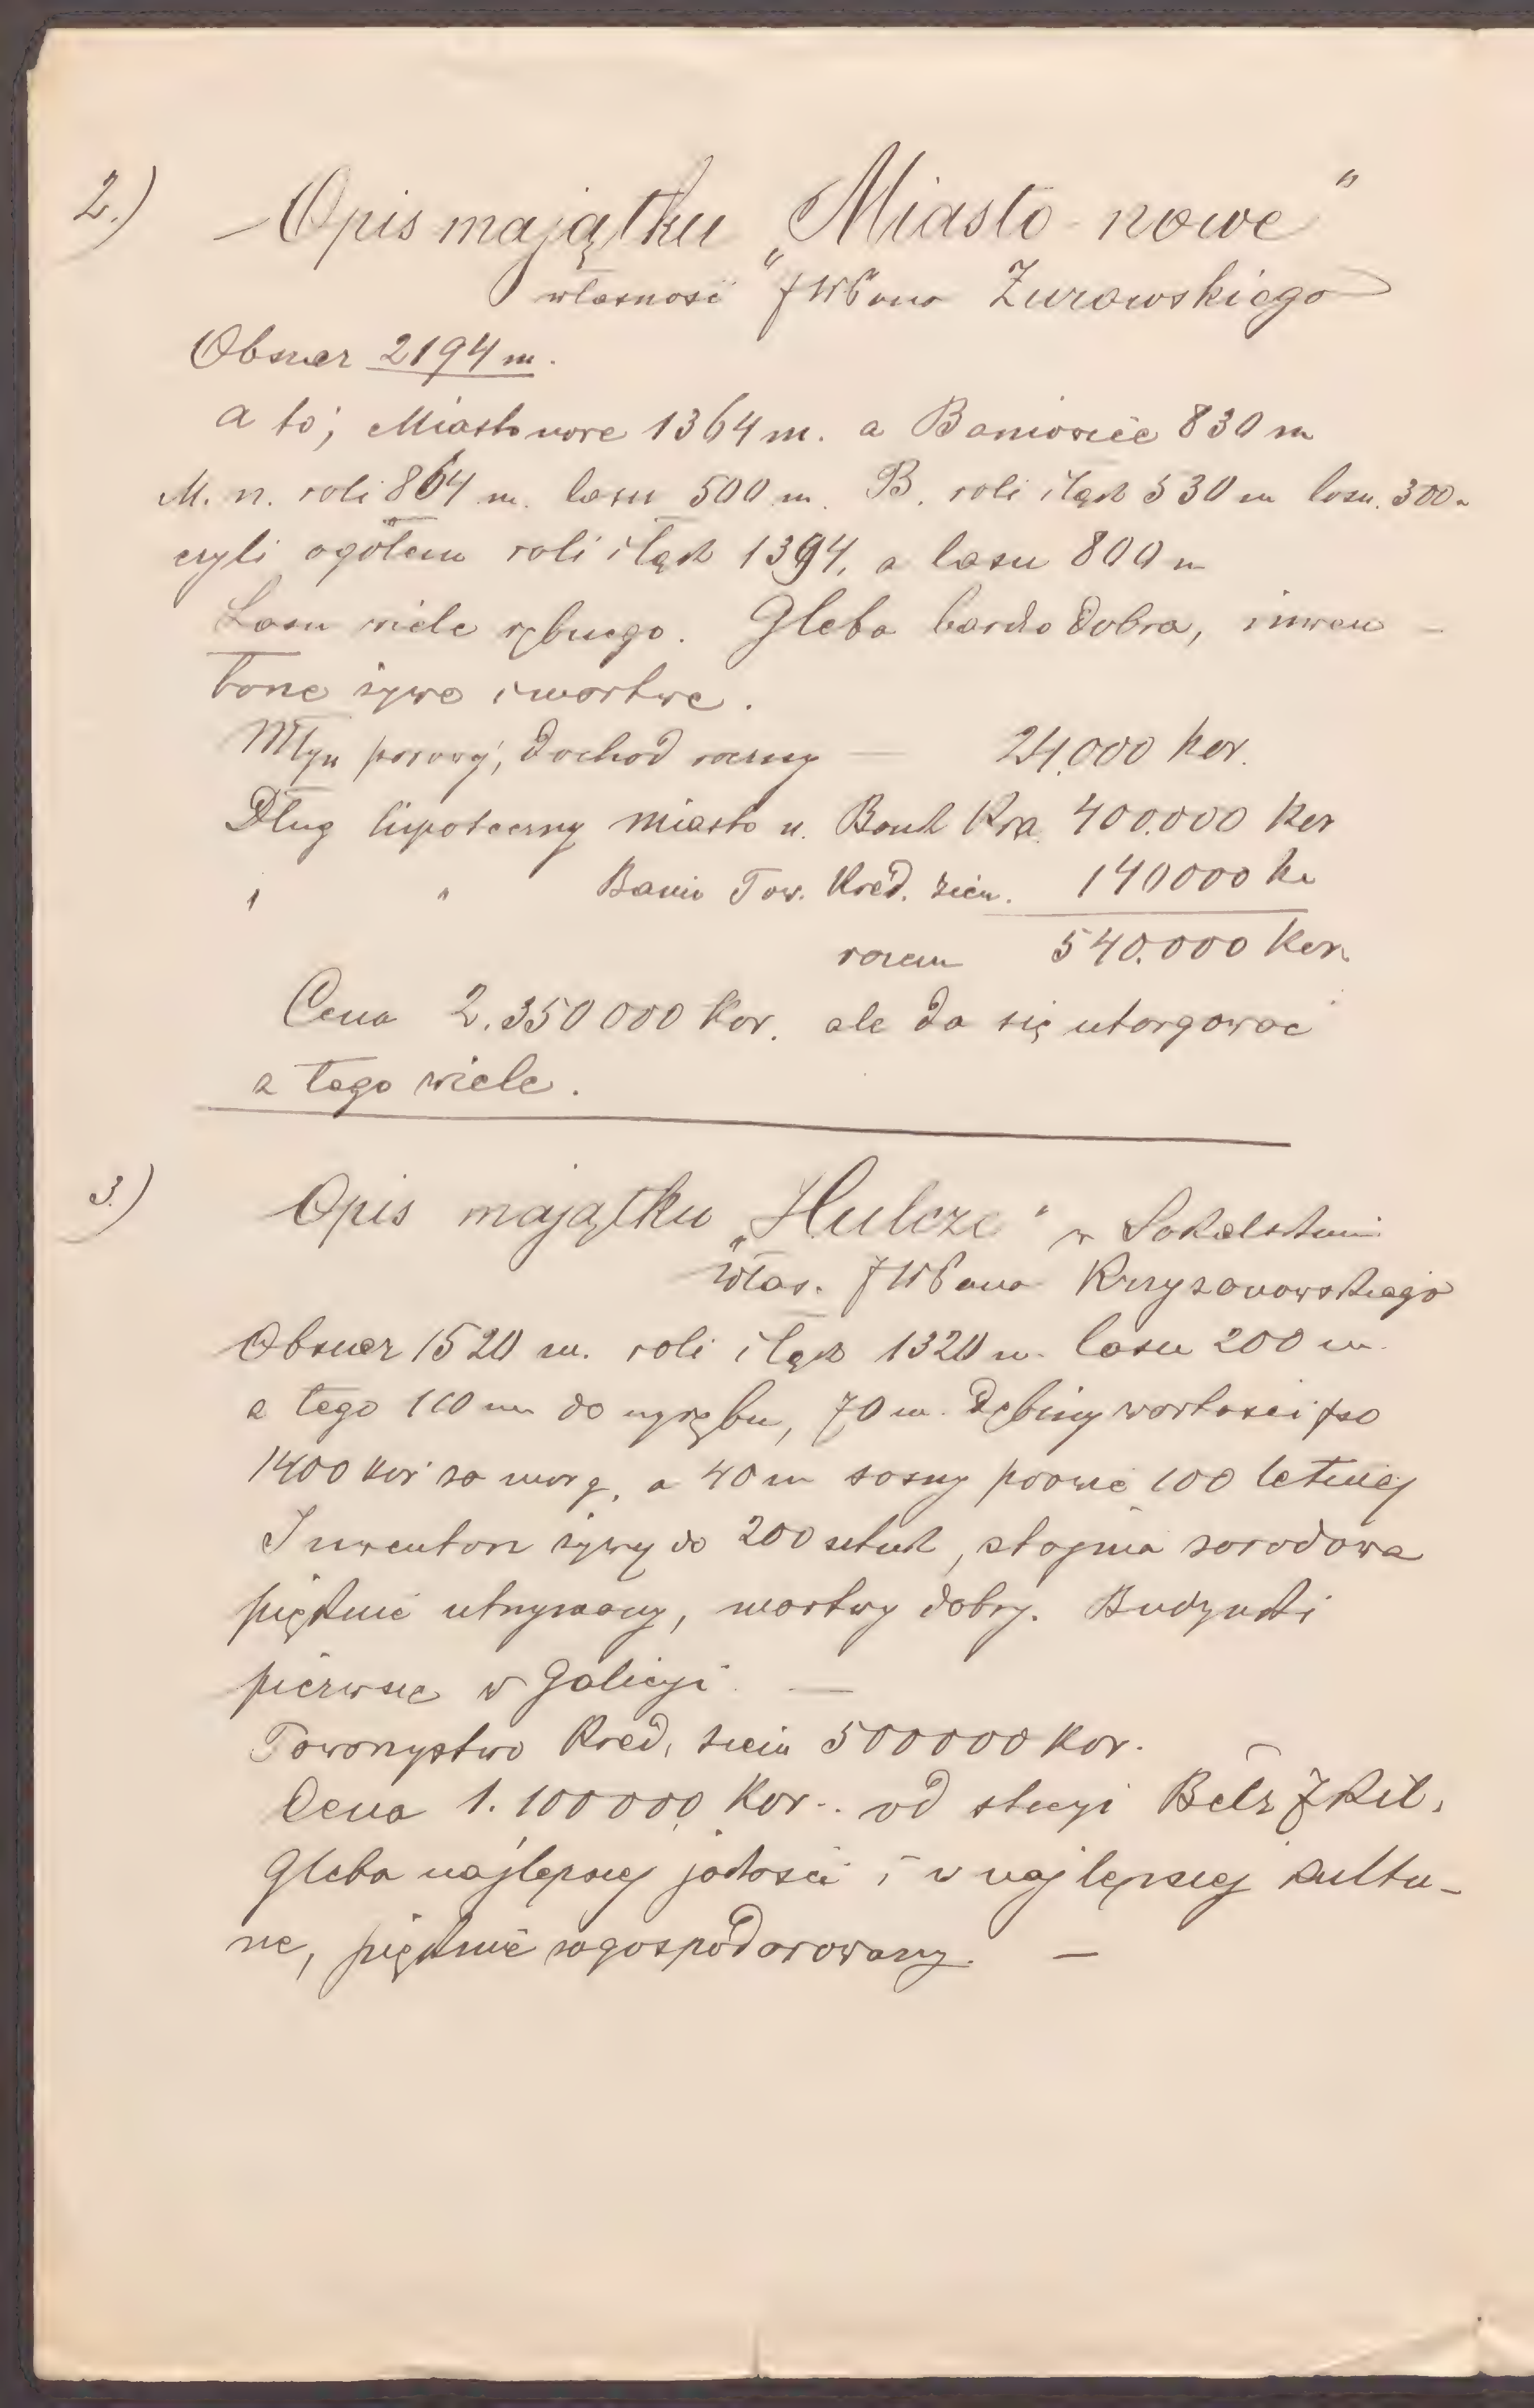 2.) Opis majątku „Miasto-nowe"
własność JWPana Żurowskiego
Obszar 2194 m.
a to; Miasto nowe 1364 m. a Baniowice 830 m
M. n. roli 864 m. lasu 500 m. B. roli i łąk 530 m lasu. 300 m
czyli ogółem roli i łąk 1394, a lasu 800 m
Lasu wiele rębnego. Gleba bardzo dobra, inwen-
tarze żywe i martwe.
Młyn parowy, dochod roczny — 24.000 kor.
Dług hipoteczny miasto n. Bank Kra. 400.000 Kor
" " Banio Tow. Kred. ziem. 140000 K
razem 540.000 Kor.
Cena 2.350000 Kor. ale da się utargować
z tego wiele.
3.) Opis majątku „Hulcze" w Sokalskim
włas. JWPana Krzyżanowskiego
Obszar 1520 m. roli i łąk 1320 m. lasu 200 m.
z tego 110 m do wyrębu, 70 m. dębiny wartości po
1400 kor za morg, a 40 m sosny prawie 100 letniej
Inwentarz żywy do 200 sztuk, stajnia zarodowa
pięknie utrzymany, martwy dobry. Budynki
pierwsze w Galicyi. —
Towarzystwo Kred, ziem 500000 Kor.
Cena 1.100000 Kor.. od stacyi Bełz 7 Kil.
Gleba najlepszej jakości i w najlepszej kultu-
rze, pięknie zagospodarowany. —